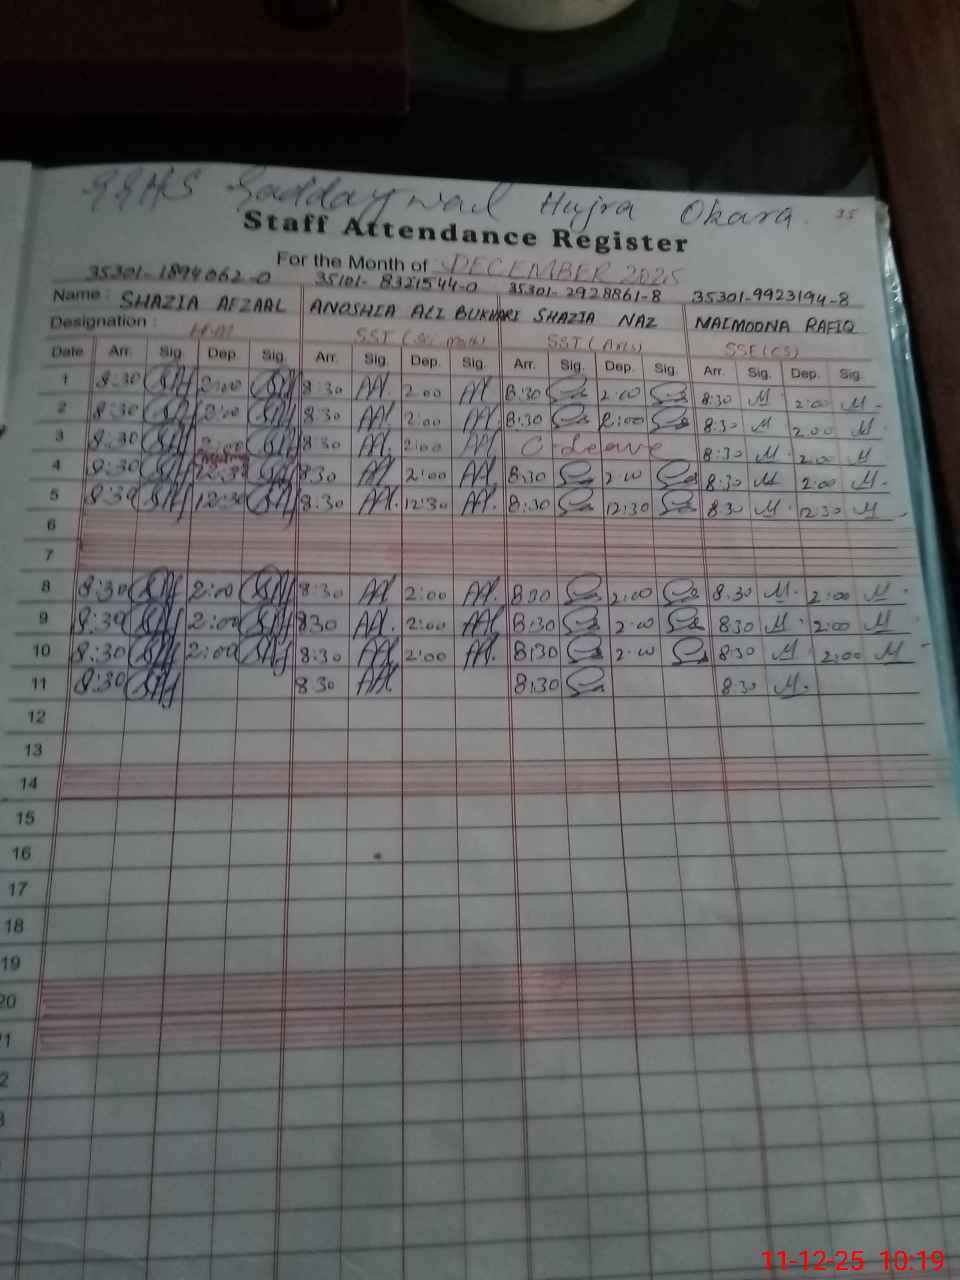 GGHS Saddaywal Hujra Okara. 35
Staff Attendance Register
For the Month of DECEMBER 2025
35301-1894062-0 35101-8321544-0 35301-2928861-8 35301-9923194-8
Name: SHAZIA AFZAAL ANOSHIA ALI BUKHARI SHAZIA NAZ MAIMOONA RAFIQ
Designation: H.M SST (Sci math) SST (Arts) SSE (CS)
Date Arr. Sig. Dep. Sig. Arr. Sig. Dep. Sig. Arr. Sig. Dep. Sig. Arr. Sig. Dep. Sig.
1 8:30 2:00 8:30 2:00 8:30 2:00 8:30 M 2:00 M
2 8:30 2:00 8:30 2:00 8:30 2:00 8:30 M 2:00 M
3 8:30 2:00 8:30 2:00 C-Leave 8:30 M 2:00 M
4 8:30 8:30 2:00 8:30 2:00 8:30 M 2:00 M
5 8:30 12:30 8:30 12:30 8:30 12:30 8:30 M 12:30 M
6
7
8 8:30 2:00 8:30 2:00 8:30 2:00 8:30 M 2:00 M
9 8:30 2:00 8:30 2:00 8:30 2:00 8:30 M 2:00 M
10 8:30 2:00 8:30 2:00 8:30 2:00 8:30 M 2:00 M
11 8:30 8:30 8:30 8:30 M
12
13
14
15
16
17
18
19
20
11-12-25 10:19